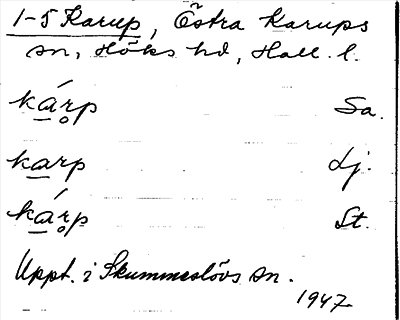 1-5 Karup, Östra Karups
sn, Höks hd, Hall. l.
kárp Sa.
karp Lj.
kárp St.
Uppt. i Skummeslövs sn.
1947